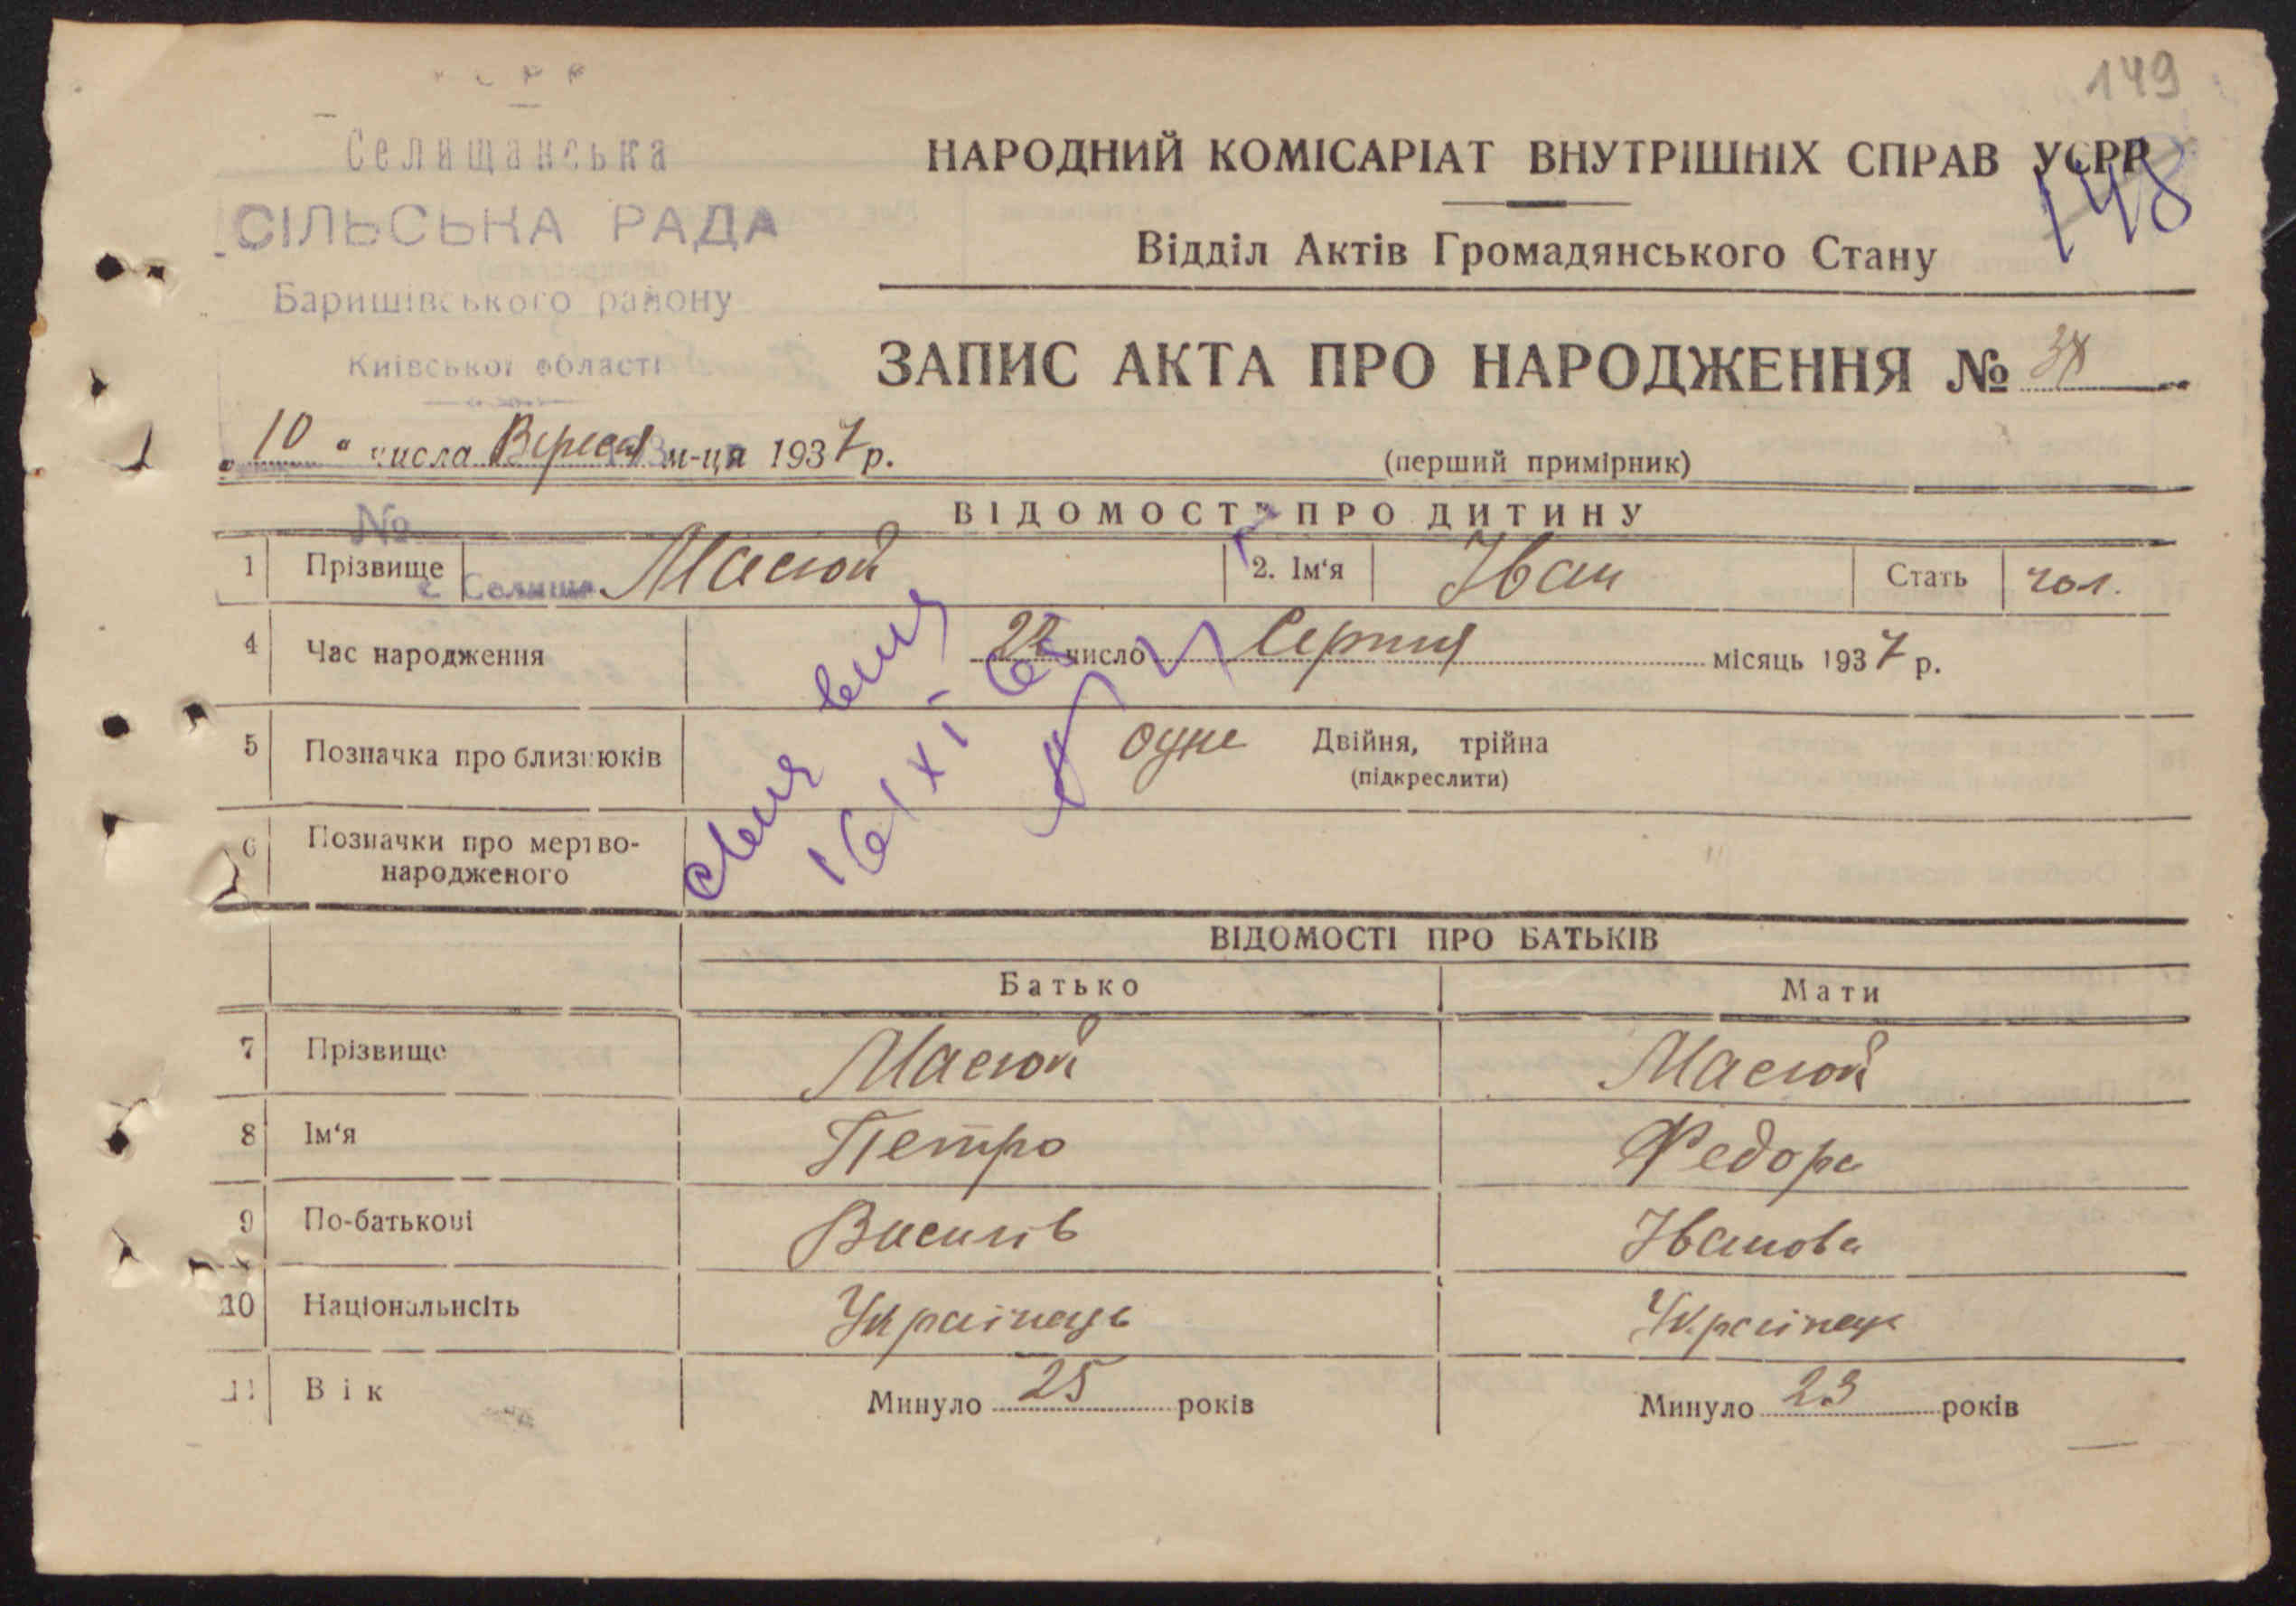 149
148
УСРР
Селищанська
СІЛЬСЬКА РАДА
Баришівського району
Київської області
НАРОДНИЙ КОМІСАРІАТ ВНУТРІШНІХ СПРАВ УСРР
Відділ Актів Громадянського Стану
ЗАПИС АКТА ПРО НАРОДЖЕННЯ № 38
„ 10 “ числа Вересня м-ця 1937 р.
(перший примірник)
№
с Селище
ВІДОМОСТІ ПРО ДИТИНУ
1 Прізвище Масюй 2. Ім‘я Іван Стать чол.
4 Час народження 22 число Серпня місяць 1937 р.
5 Позначка про близнюків одне Двійня, трійна
(підкреслити)
6 Позначки про мертво-
народженого
16/XI-65
ВІДОМОСТІ ПРО БАТЬКІВ
Батько Мати
7 Прізвище Масюй Масюй
8 Ім‘я Петро Федора
9 По-батькові Василів Іванова
10 Національнсіть Українець Українец
11 Вік Минуло 25 років Минуло 23 років